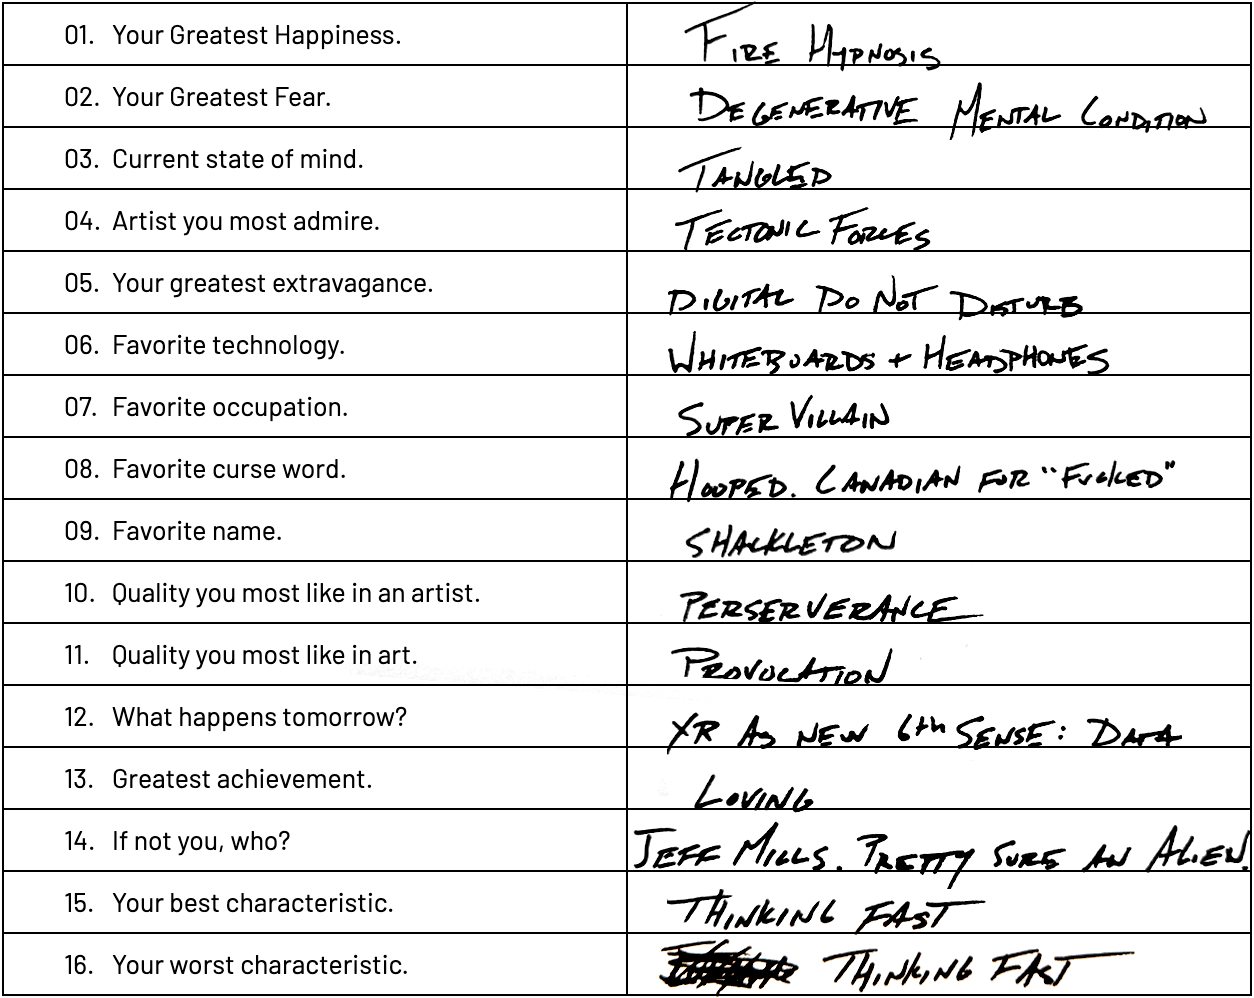 01. Your Greatest Happiness. FIRE HYPNOSIS
02. Your Greatest Fear. DEGENERATIVE MENTAL CONDITION
03. Current state of mind. TANGLED
04. Artist you most admire. TECTONIC FORCES
05. Your greatest extravagance. DIGITAL DO NOT DISTURB
06. Favorite technology. WHITEBOARDS + HEADPHONES
07. Favorite occupation. SUPER VILLAIN
08. Favorite curse word. HOOPED. CANADIAN FOR "FUCKED"
09. Favorite name. SHACKLETON
10. Quality you most like in an artist. PERSERVERANCE
11. Quality you most like in art. PROVOCATION
12. What happens tomorrow? XR AS NEW 6th SENSE: DATA
13. Greatest achievement. LOVING
14. If not you, who? JEFF MILLS. PRETTY SURE AN ALIEN.
15. Your best characteristic. THINKING FAST
16. Your worst characteristic. THINKING FAST